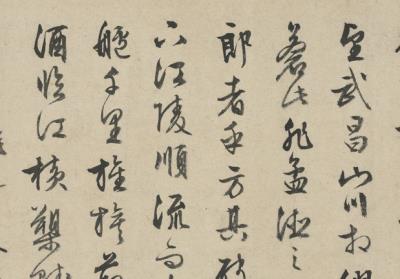 望武昌山川相繆
蒼此非孟德之
郎者乎方其破
下江陵順流而東
艫千里旌旗蔽
酒臨江橫槊賦